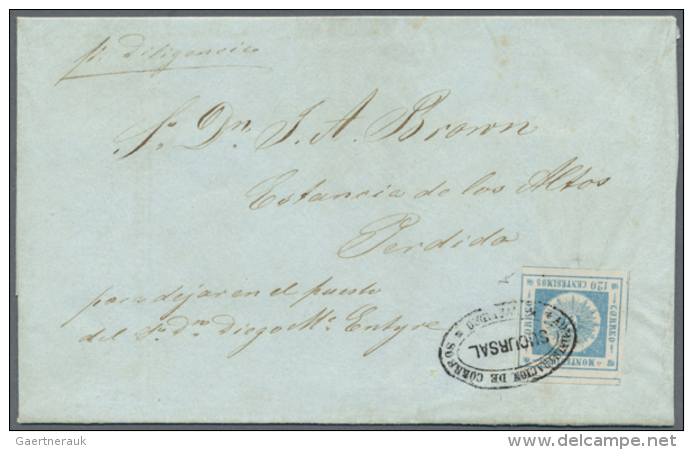 pr Diligencia
Sr. Dn. J. A. Brown
Estancia de los Altos
Perdido
para dejar en el puesto
del Sr. Dn Diego Mc Entyre
120 CENTESIMOS
CORREO
MONTE
ADMINISTRACION DE CORREOS
SUCURSAL
Gaertnerauk
delcampe.net